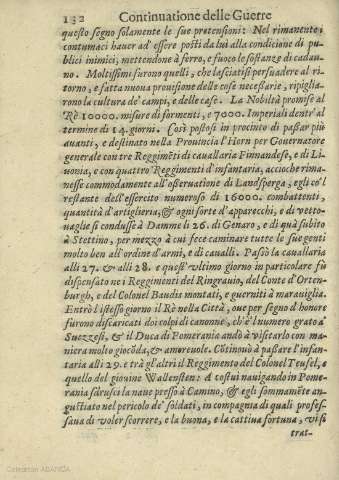 132 Continuatione delle Guerre
questo segno solamente le sue pretensioni: Nel rimanente i
contumaci hauer ad essere posti da lui alla condicione di pu-
blici inimici, mettendone à ferro, e fuoco le sostanze di cadau-
no. Moltissimi furono quelli, che lasciatisi persuadere al ri-
torno, e fatta nuoua prouisione delle cose necessarie, ripiglia-
rono la cultura de' campi, e delle case. La Nobiltà promise al
Rè 10000. misure di formenti, e 7000. Imperiali dentr'al
termine di 14. giorni. Così postosi in procinto di passar più
auanti, e destinato nella Prouincia l'Horn per Gouernatore
generale con tre Reggimēti di cauallaria Finnandese, e di Li-
uonia, e con quattro Reggimenti d'infantaria, acciochè rima-
nesse commodamente all'osseruatione di Landsperga, egli co'l
restante dell'essercito numeroso di 16000. combattenti,
quantità d'artiglieria, & ogni sorte d'apparecchi, e di vetto-
uaglie si condusse à Damme li 26. di Genaro, e di quà subito
à Stettino, per mezzo à cui fece caminare tutte le sue genti
molto ben all'ordine d'armi, e di caualli. Passò la cauallaria
alli 27. & alli 28. e quest' vltimo giorno in particolare fù
dispensato nei Reggimenti del Ringrauio, del Conte d'Orten-
burgh, e del Colonel Baudis montati, e guerniti à marauiglia.
Entrò l'istesso giorno il Rè nella Città, oue per segno d'honore
furono discaricati doi colpi di cannone, ch'è'l numero grato a'
Suezzesi, & il Duca di Pomerania andò à visitarlo con ma-
niera molto giocōda, & amoreuole. Cōtinouò à passare l'infan-
taria alli 29. e trà gl'altri il Reggimento del Colonel Teufel, e
quello del giouine Wallensten: à costui nauigando in Pome-
rania sdrusci la naue presso à Camino, & egli sommamēte an-
gustiato nel pericolo de' soldati, in compagnia di quali profes-
saua di voler scorrere, e la buona, e la cattiua fortuna, vi si
trat-
Colección ABANCA